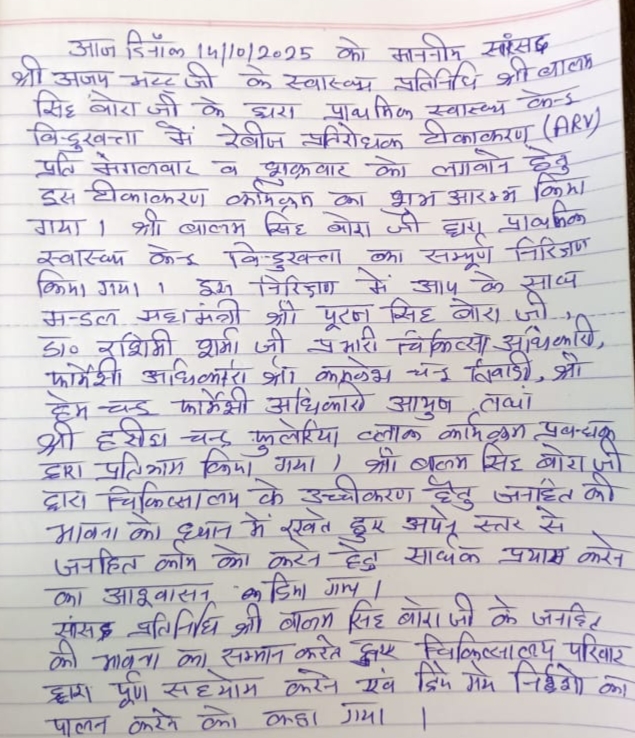 आज दिनाँक 14/10/2025 को माननीय सांसद
श्री अजय भट्ट जी के स्वास्थ्य प्रतिनिधि श्री बालम
सिंह बोरा जी के द्वारा प्राथमिक स्वास्थ्य केन्द्र
बिन्दुखत्ता में रेबीज प्रतिरोधक टीकाकरण (ARV)
प्रति मंगलवार व शुक्रवार को लगवाने हेतु
इस टीकाकरण कार्यक्रम का शुभ आरम्भ किया
गया। श्री बालम सिंह बोरा जी द्वारा प्राथमिक
स्वास्थ्य केन्द्र बिन्दुखत्ता का सम्पूर्ण निरिक्षण
किया गया। इस निरिक्षण में आप के साथ
मन्डल महामंत्री श्री पूरन सिंह बोरा जी,
डा० रश्मि शर्मा जी प्रभारी चिकित्सा अधिकारी,
फार्मेसी अधिकारी श्री कमलेश चन्द्र तिवाड़ी, श्री
हेम चन्द्र फार्मेसी अधिकारी आयुष तथा
श्री हरीश चन्द्र फुलेरिया ब्लाक कार्यक्रम प्रबन्धक
द्वारा प्रतिभाग किया गया। श्री बालम सिंह बोरा जी
द्वारा चिकित्सालय के उच्चीकरण हेतु जनहित की
भावना को ध्यान में रखते हुए अपने स्तर से
जनहित कार्य को करने हेतु सार्थक प्रयास करने
का आश्वासन दिया गया।
सांसद प्रतिनिधि श्री बालम सिंह बोरा जी के जनहित
की भावना का सम्मान करते हुए चिकित्सालय परिवार
द्वारा पूर्ण सहयोग करने एवं दिये गये निर्देशो का
पालन करने को कहा गया।